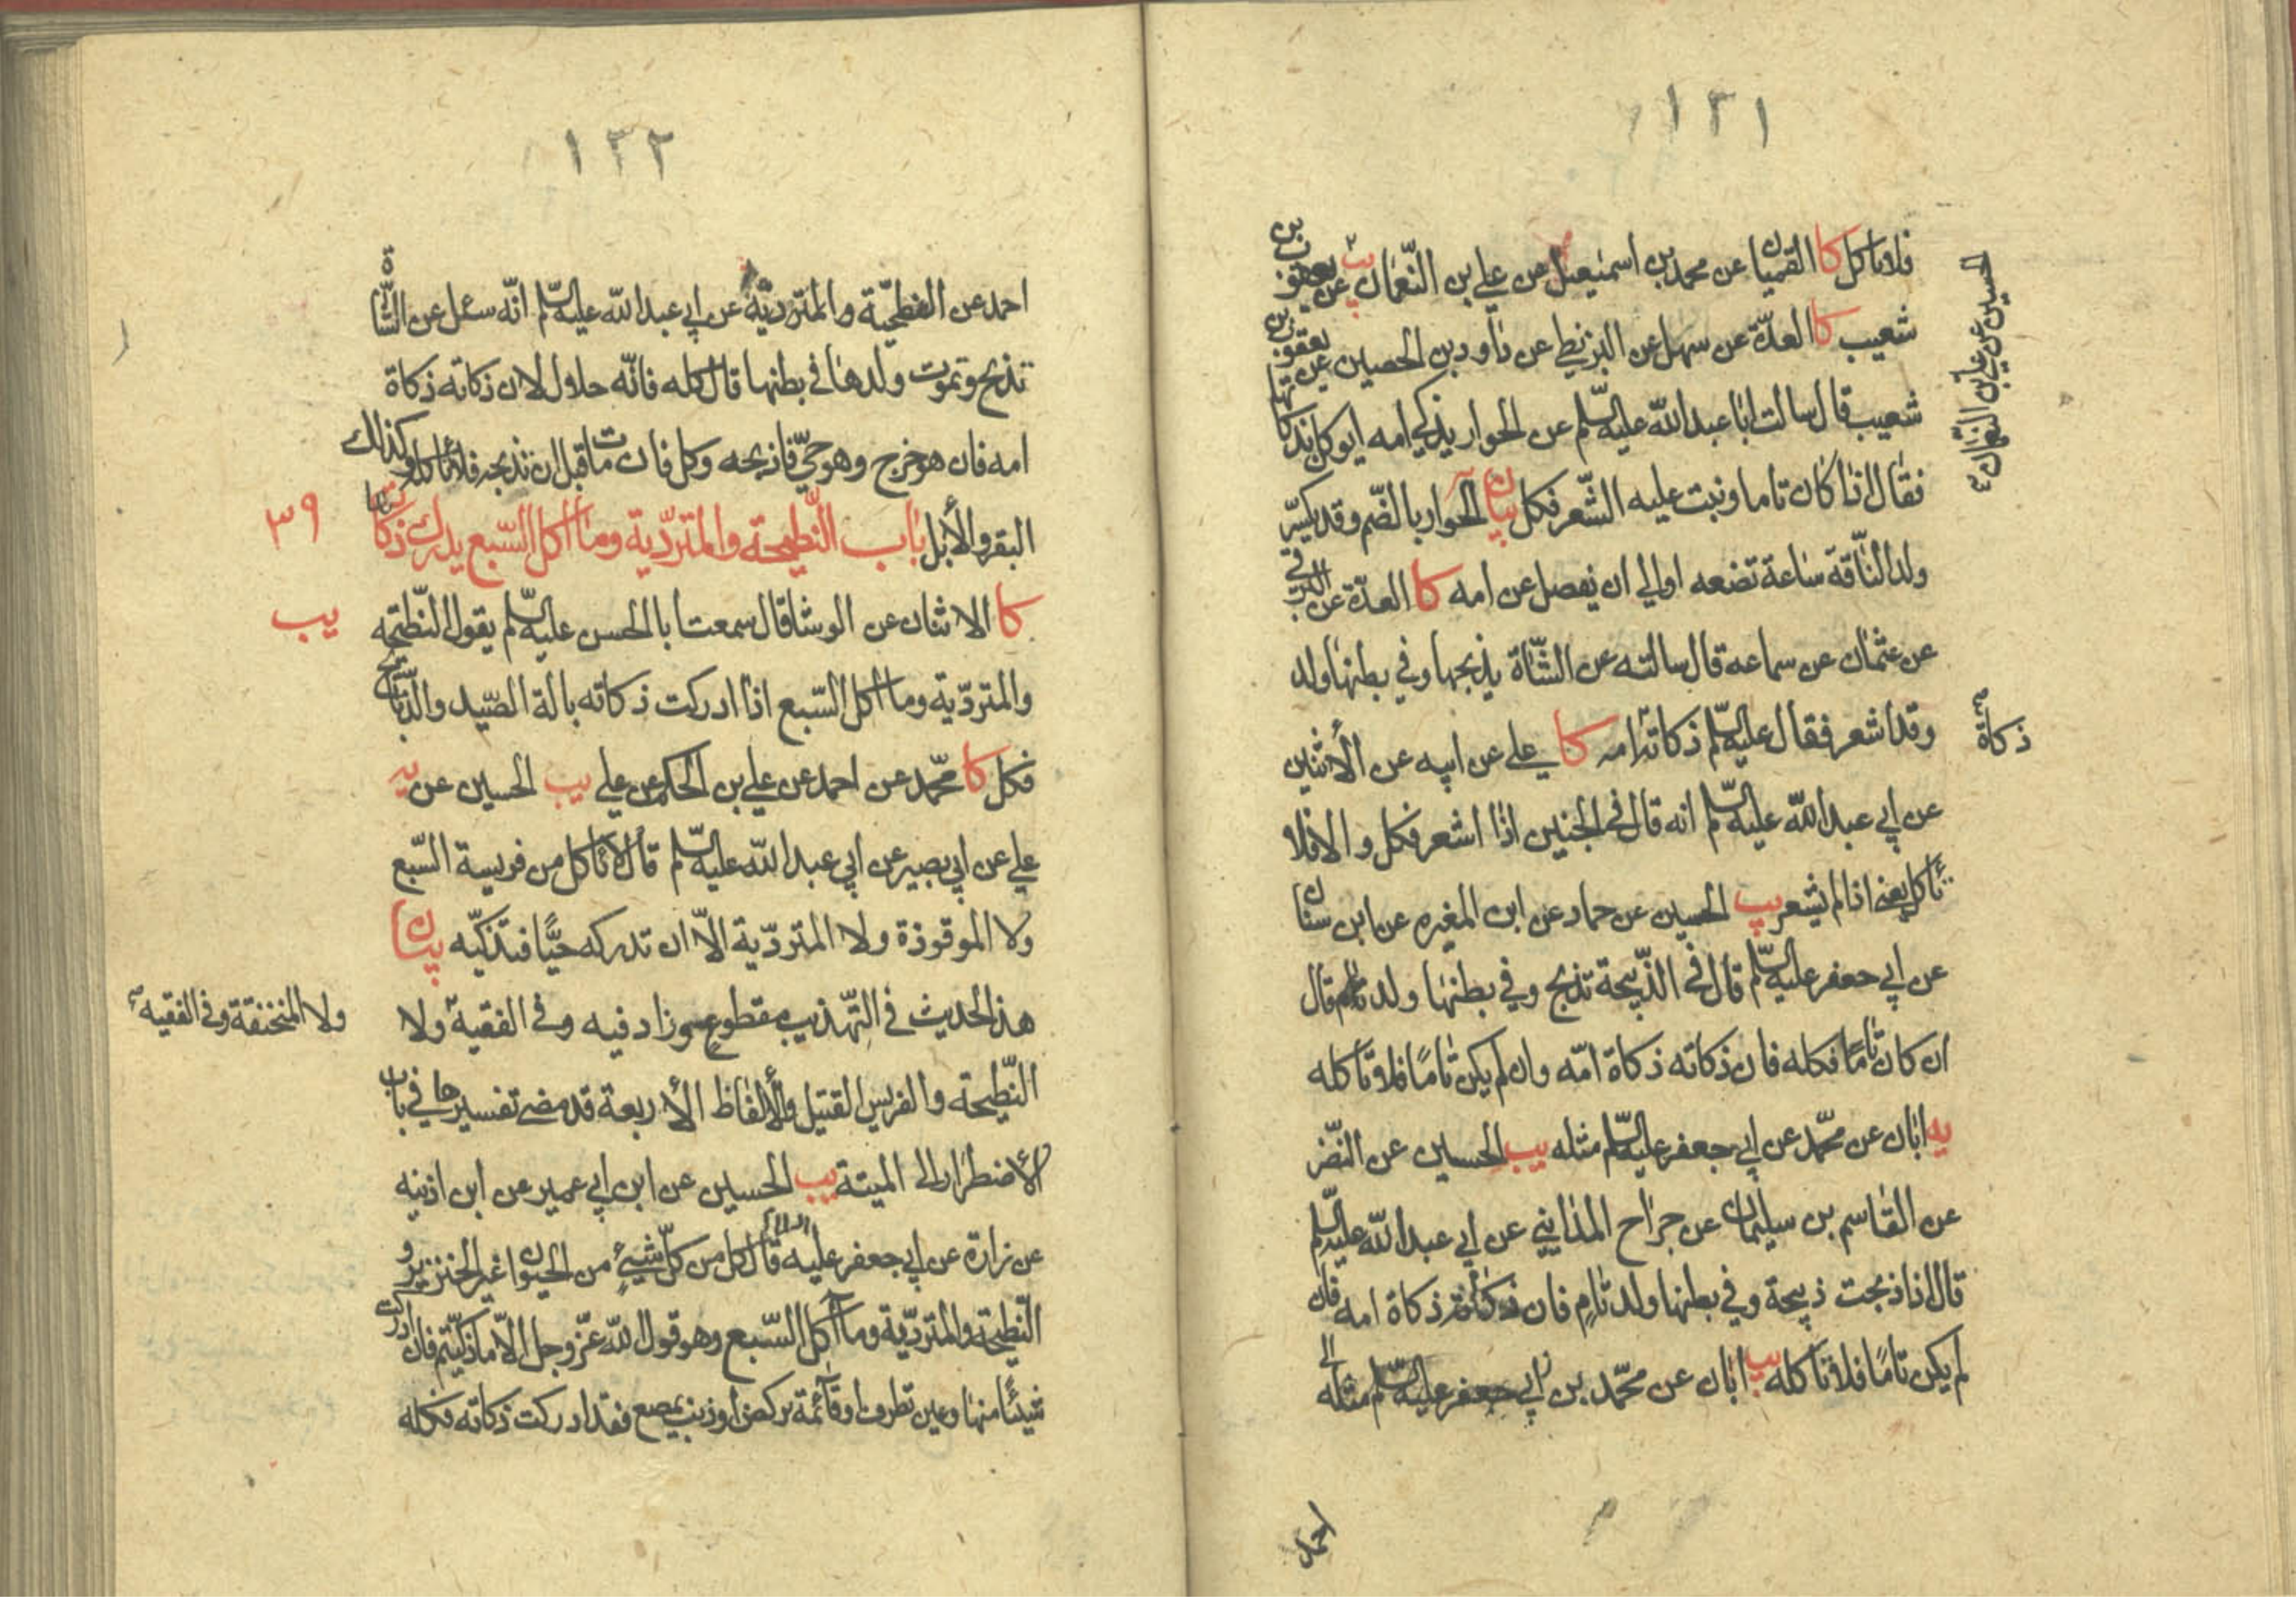 ١٣١
فلا تاكل كا القميان عن محمد بن اسمعيل عن علي بن النعمان يب عن يعقوب بن
الحسين عن علي بن النعمان
شعيب كا العدة عن سهل عن البزنطي عن داود بن الحصين عن يعقوب بن
شعيب قال سالت ابا عبد الله عليه السلم عن الحوار يذكي امه ايوكل بذكاتها
فقال اذا كان تاما ونبت عليه الشعر فكل بيان الحوار بالضم وقد يكسر
ولد الناقة ساعة تضعه او الي ان يفصل عن امه كا العدة عن البرقي
عن عثمان عن سماعه قال سالته عن الشاة يذبحها وفي بطنها ولد
وقد اشعر فقال عليه السلم ذكاته امه كا علي عن ابيه عن الأثنين
ذكاة
عن ابي عبد الله عليه السلم انه قال في الجنين اذا اشعر فكل والا فلا
تأكل يعني اذا لم يشعر يب الحسين عن حماد عن ابن المغيره عن ابن سنان
عن ابي جعفر عليه السلم قال في الذبيحة تذبح وفي بطنها ولد قال
ان كان تامًا فكله فان ذكاته ذكاة امه وان لم يكن تامًا فلا تاكله
يه ابان عن محمد عن ابي جعفر عليه السلم مثله يب الحسين عن النضر
عن القاسم بن سليمان عن جراح المدايني عن ابي عبد الله عليه السلم
قال اذا ذبحت ذبيحة وفي بطنها ولد تام فان ذكاته ذكاة امه فان
لم يكن تامًا فلا تاكله يب ابان عن محمد بن ابي جعفر عليه السلم مثله
احمد
١٣٢
احمد عن الفطحية عن ابي عبد الله عليه السلم انه سئل عن الشاة
تذبح وتموت ولدها في بطنها قال كله فانه حلال لان ذكاته ذكاة
امه فان هو خرج وهو حي فاذبحه وكل فان مات قبل ان تذبحه فلا تأكله وكذلك
البقر والأبل باب النطيحة والمتردية وما اكل السبع يدرك ذكاتها
٣٩
كا الاثنان عن الوشا قال سمعت ابا الحسن عليه السلم يقول النطيحه
يب
والمتردية وما اكل السبع اذا ادركت ذكاته
فكل كا محمد عن احمد عن علي بن الحكم عن علي يب الحسين عن يه
علي عن ابي بصير عن ابي عبد الله عليه السلم قال لا تأكل من فريسة السبع
ولا الموقوذة ولا المتردية الا ان تدركه حيًا فتذكيه بيان
هذا الحديث في التهذيب مقطوع وزاد فيه وفي الفقيه ولا
ولا المنخنقة وفي الفقيه
النطيحة والفريس القتيل والألفاظ الأربعة قد مضى تفسيرها في باب
الأضطرار الى الميتة يب الحسين عن ابن ابي عمير عن ابن اذينه
عن زرارة عن ابي جعفر عليه السلم قال كل من كل شيئ من الحيوان غير الخنزير و
النطيحة والمتردية وما اكل السبع وهو قول الله عز وجل الا ما ذكيتم فان ادركت
شيئًا منها وعين تطرف او قائمة تركض او ذنب يمصع فقد ادركت ذكاته فكله